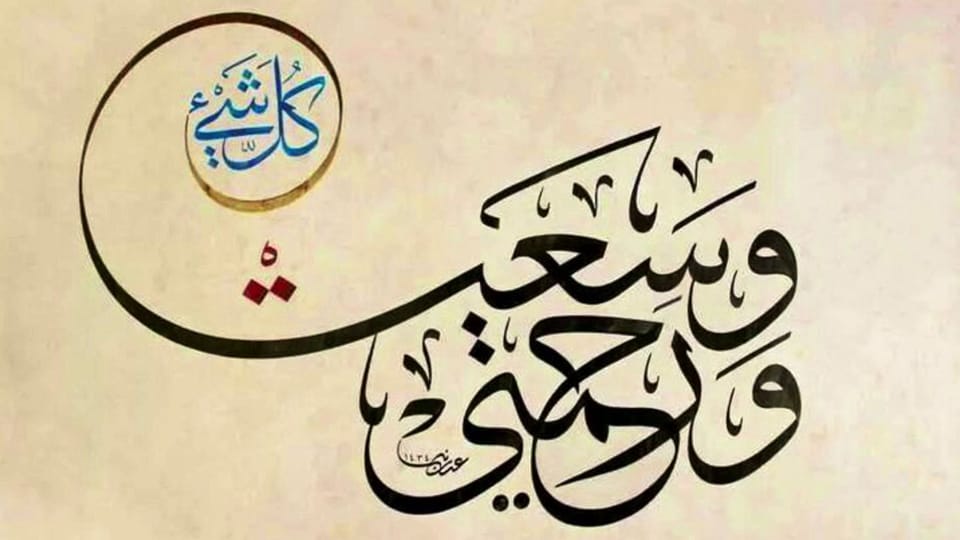 وَرَحْمَتِي
وَسِعَتْ
كُلَّ شَيْءٍ
عدنان ١٤٣٤